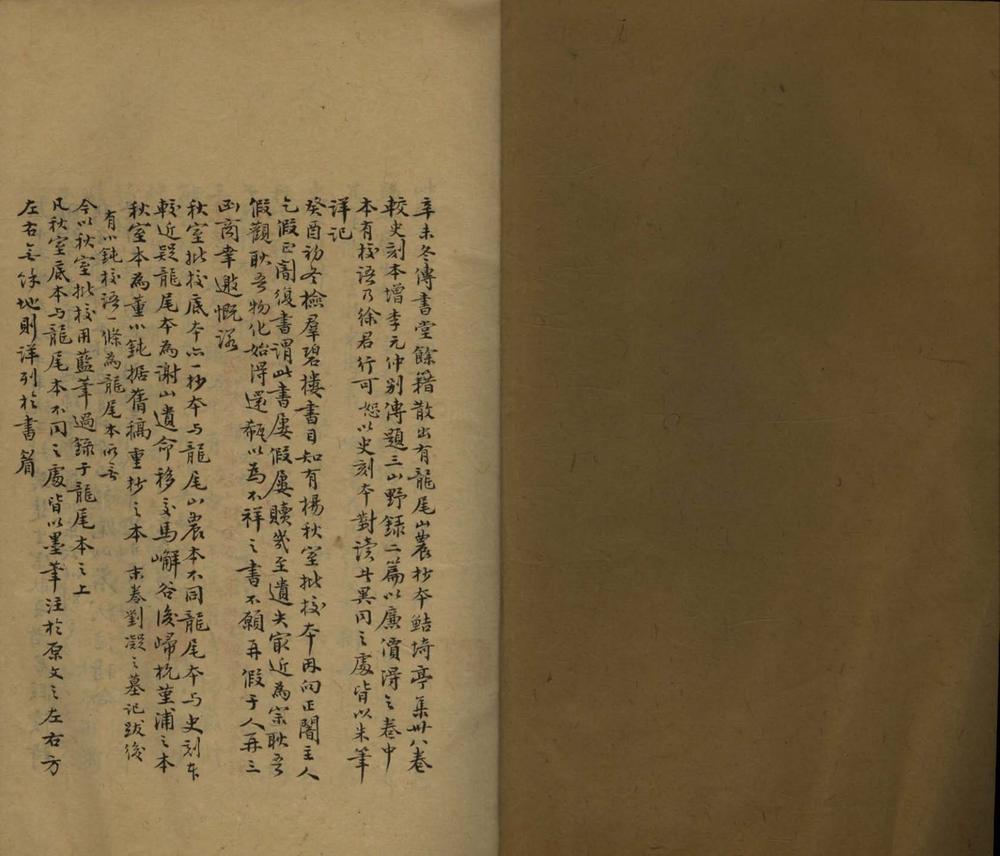 辛未冬傳書堂餘籍散出有龍尾山農抄本鮚埼亭集卅八卷
較史刻本增李元仲別傳題三山野録二篇以廉價得之卷中
本有校語乃徐君行可恕以史刻本對讀其異同之處皆以朱筆
详记
癸酉初冬檢羣碧樓書目知有楊秋室批校本因向正闇主人
乞假正闇復書謂此書屢假屢贖幾至遺失最近為宗耿吾
假觀耿吾物化始得還甄以為不祥之書不願再假于人再三
函商幸邀慨諾
秋室批校底本亦一抄本与龍尾山農本不同龍尾本与史刻本
較近疑龍尾本為謝山遺命移交馬嶰谷後歸杭堇浦之本
秋室本為董小鈍据舊稿重抄之本 末卷劉凝之墓记跋後
有小鈍校语一條為龍尾本所无
今以秋室批校用藍筆過録于龍尾本之上
凡秋室底本与龍尾本不同之處皆以墨筆注於原文之左右方
左右无餘地則詳列於書眉